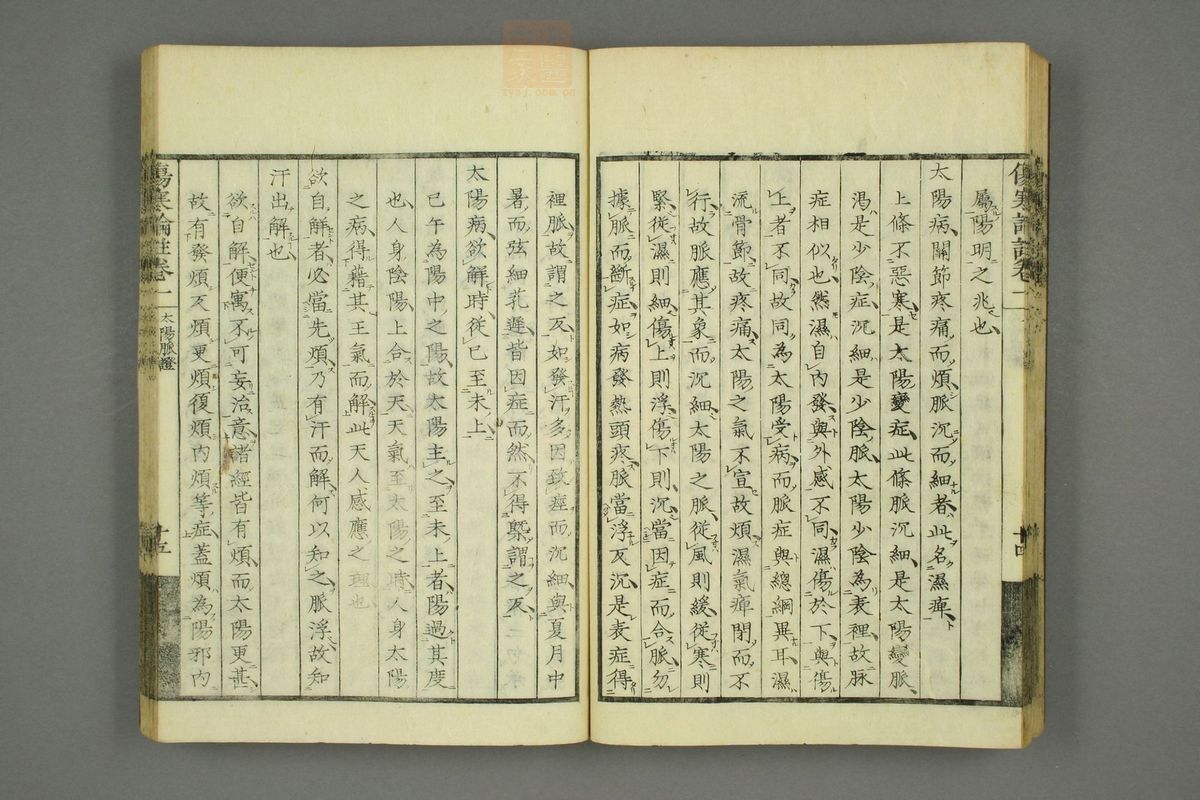 傷寒論註卷一
屬陽明之兆也
太陽病關節疼痛而煩脈沉而細者此名濕痺
上條不惡寒是太陽變症此條脈沉細是太陽變脈
渴是少陰症沉細是少陰脈太陽少陰為表裡故脉
症相似也然濕自內發與外感不同濕傷於下與傷
上者不同故同為太陽受病而脈症與總綱異耳濕
流骨節故疼痛太陽之氣不宣故煩濕氣痺閉而不
行故脈應其象而沉細太陽之脈從風則緩從寒則
緊從濕則細傷上則浮傷下則沉當因症而合脈勿
據脈而斷症如病發熱頭疼脈當浮反沉是表症得
十四
裡脈故謂之反如發汗多因致痙而沉細與夏月中
暑而弦細芤遲皆因症而然不得槩謂之反
太陽病欲解時從巳至未上
巳午為陽中之陽故太陽主之至未上者陽過其度
也人身陰陽上合於天天氣至太陽之時人身太陽
之病得藉其王氣而解此天人感應之理也
欲自解者必當先煩乃有汗而解何以知之脈浮故知
汗出解也
欲自解便寓不可妄治意諸經皆有煩而太陽更甚
故有發煩反煩更煩復煩內煩等症蓋煩為陽邪內
傷寒論註卷一
太陽脈證
十五
zysj.com.cn